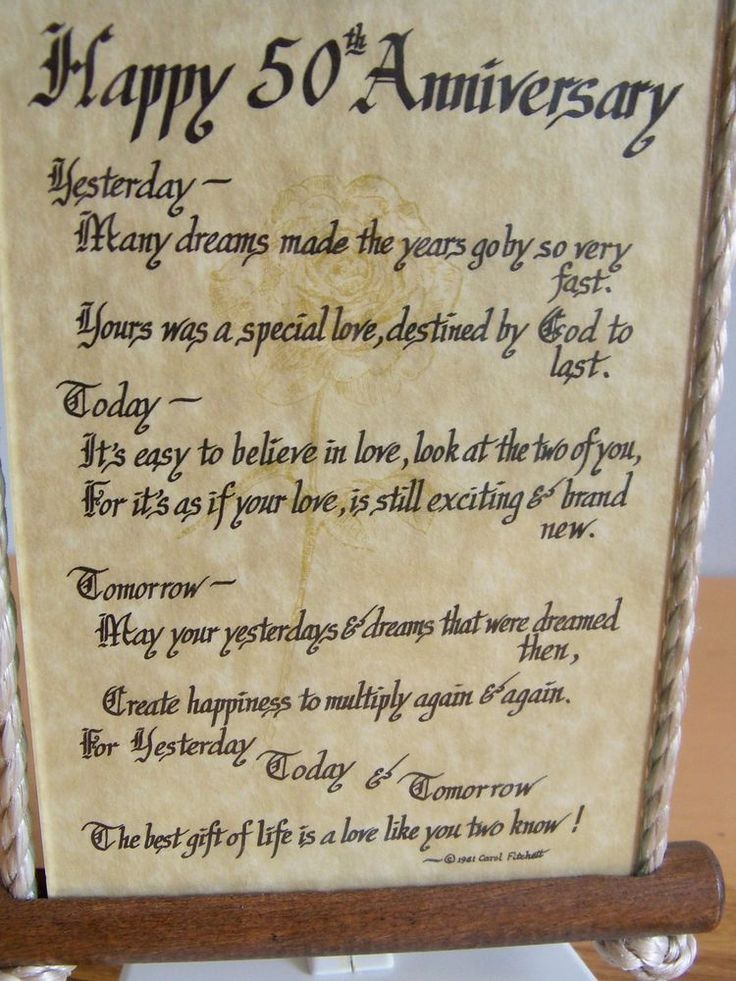 Happy 50th Anniversary
Yesterday ~
Many dreams made the years go by so very
fast.
Yours was a special love, destined by God to
last.
Today ~
It's easy to believe in love, look at the two of you,
For it's as if your love, is still exciting & brand
new.
Tomorrow ~
May your yesterdays & dreams that were dreamed
then,
Create happiness to multiply again & again.
For Yesterday
Today & Tomorrow
The best gift of life is a love like you two know!
~ © 1981 Carol Fitchett